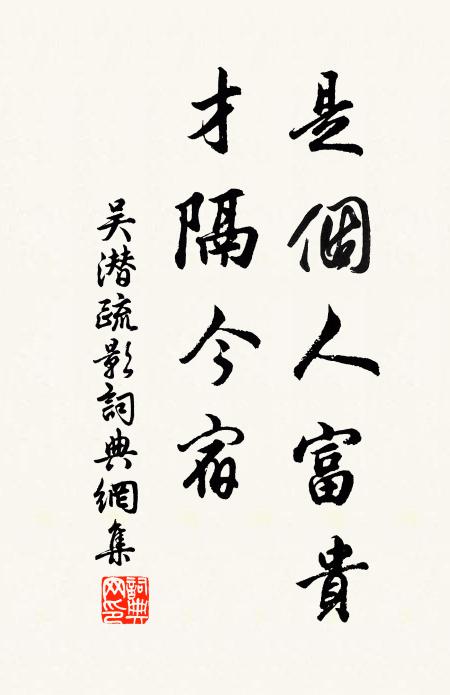 是個人富貴
才隔今宿
吴潜疏影詞典網集
詞典网印